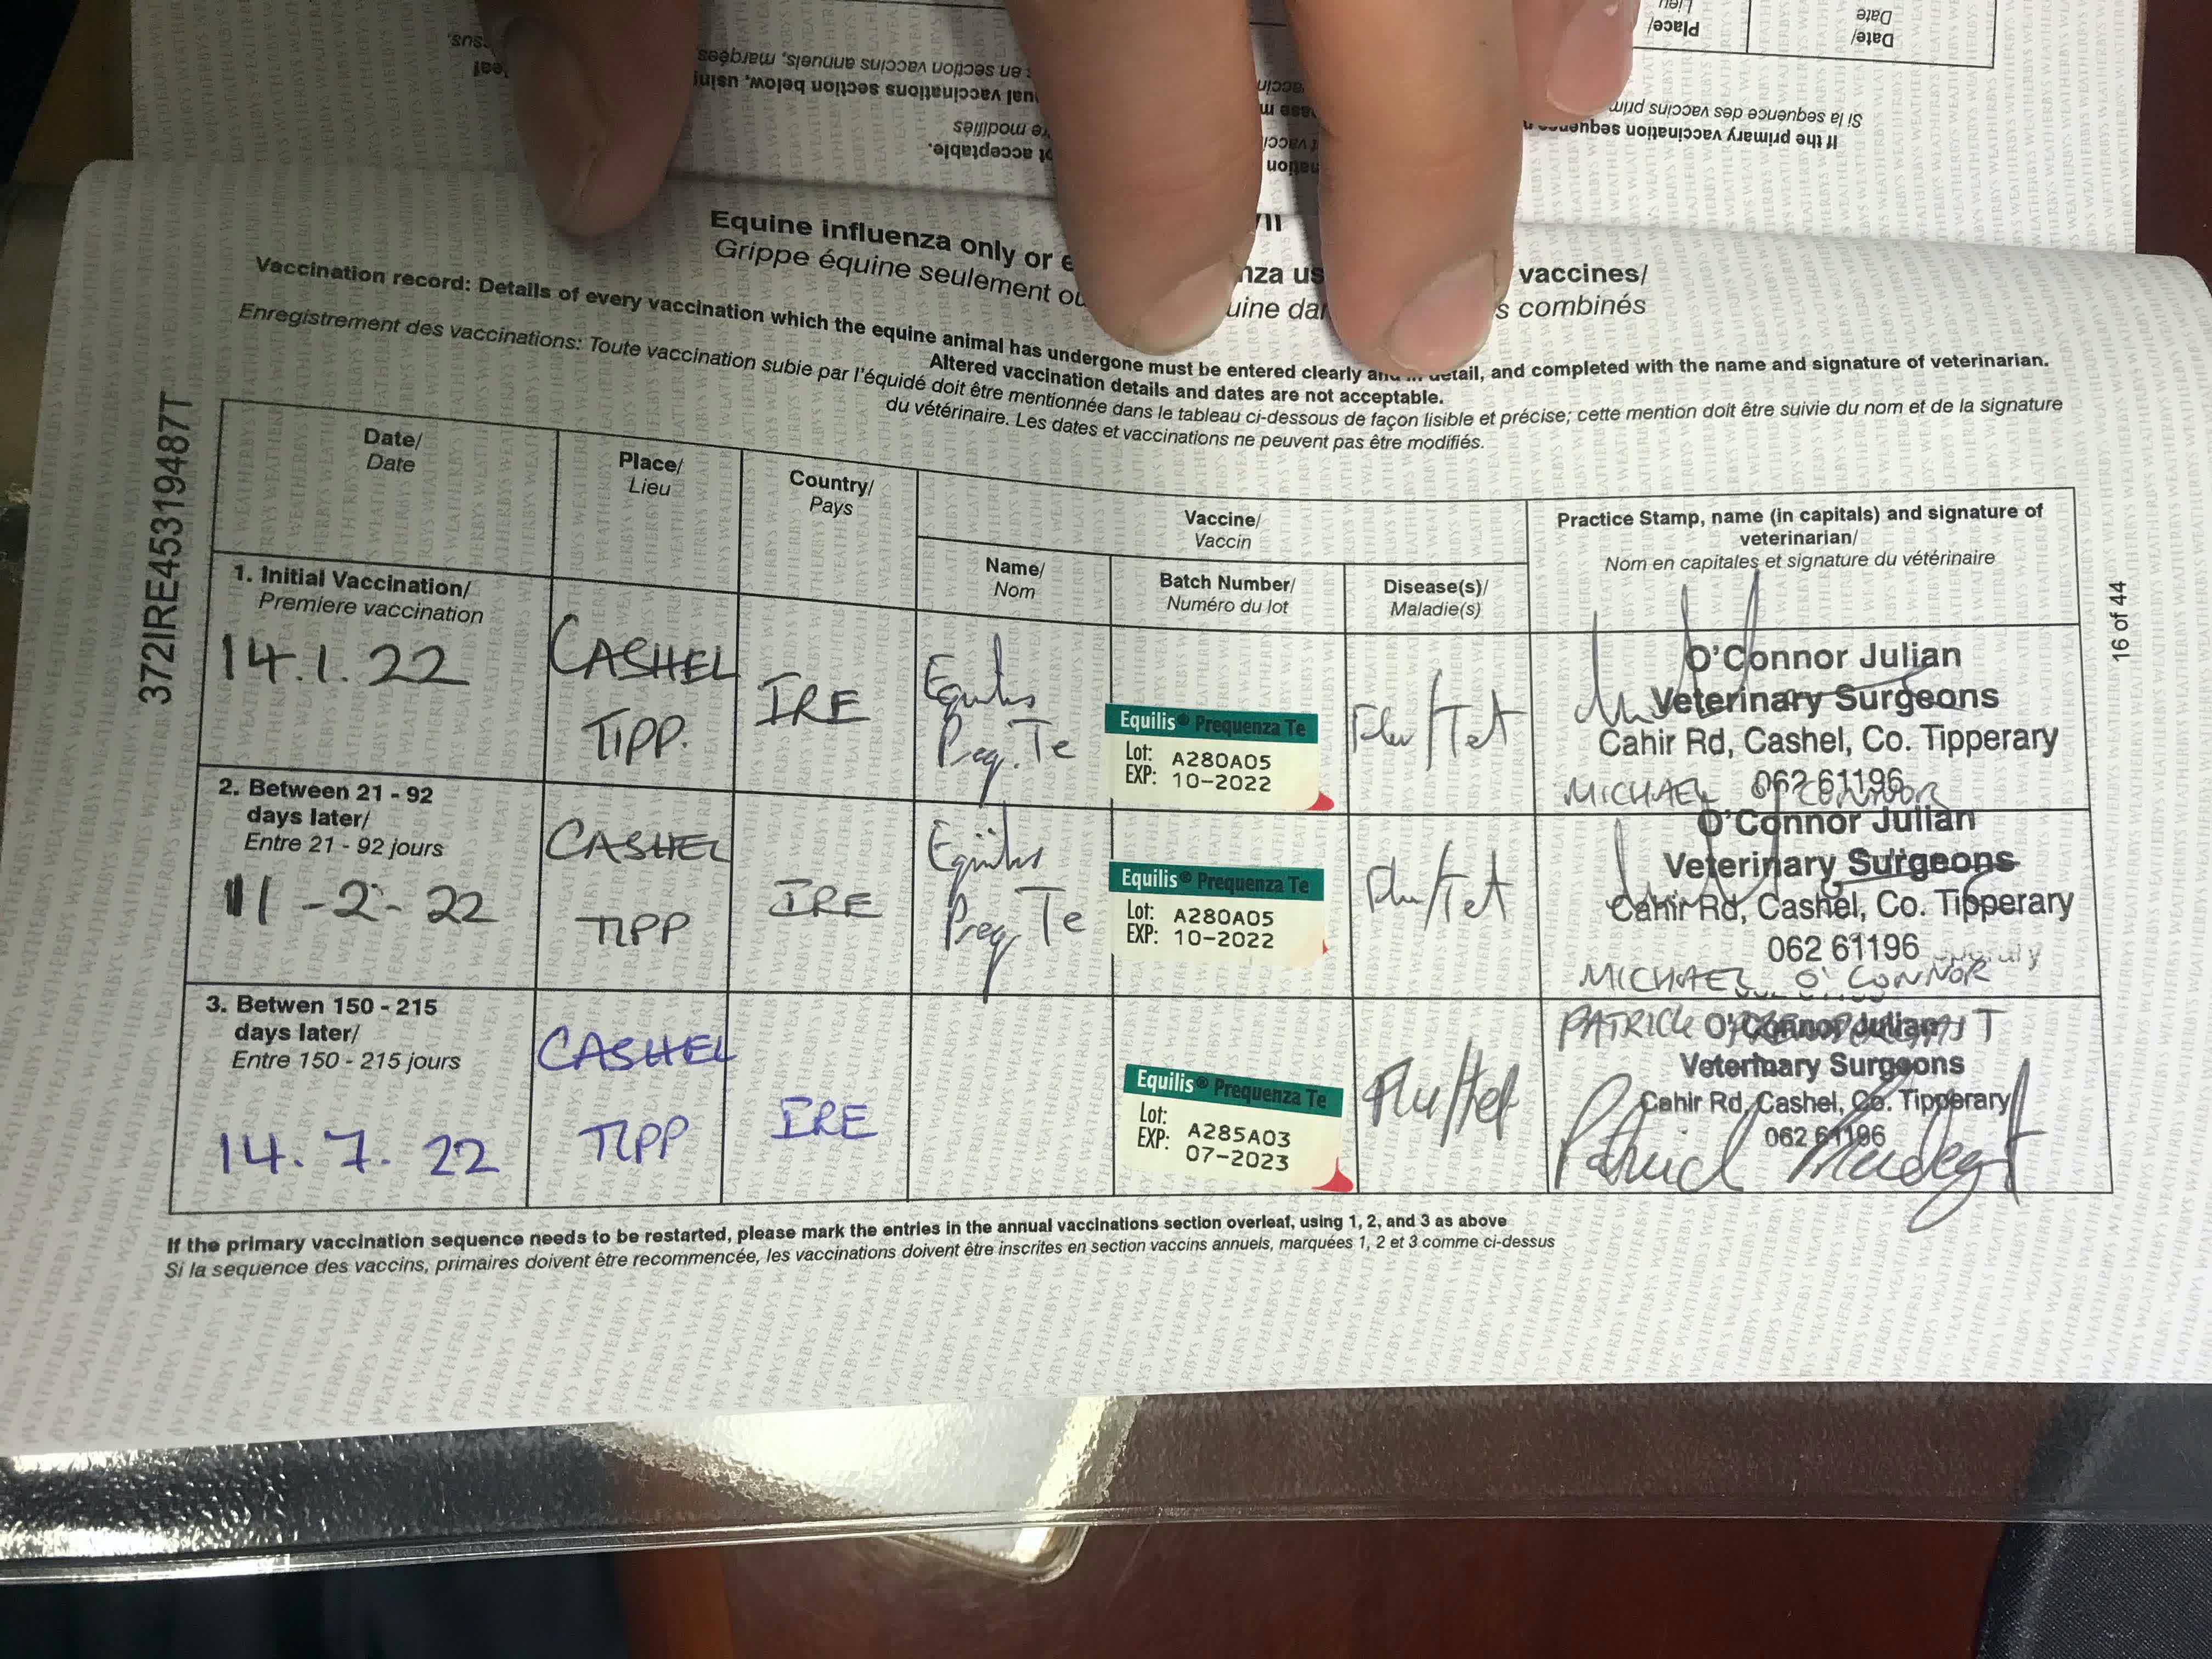 Date/
Date
Place/
Lieu
Si la sequence des vaccins prim
If the primary vaccination sequence
en section vaccins annuels, marquées
ual vaccinations section below, using
re modifiés
ot acceptable.
Equine influenza only or e
nza us
vaccines/
Grippe équine seulement ou
uine dan
s combinés
Vaccination record: Details of every vaccination which the equine animal has undergone must be entered clearly and in detail, and completed with the name and signature of veterinarian.
Altered vaccination details and dates are not acceptable.
Enregistrement des vaccinations: Toute vaccination subie par l'équidé doit être mentionnée dans le tableau ci-dessous de façon lisible et précise; cette mention doit être suivie du nom et de la signature
du vétérinaire. Les dates et vaccinations ne peuvent pas être modifiés.
372IRE45319487T
16 of 44
Date/
Date
Place/
Lieu
Country/
Pays
Vaccine/
Vaccin
Name/
Nom
Batch Number/
Numéro du lot
Disease(s)/
Maladie(s)
Practice Stamp, name (in capitals) and signature of
veterinarian/
Nom en capitales et signature du vétérinaire
1. Initial Vaccination/
Premiere vaccination
14.1.22
CASHEL
TIPP.
IRE
Equilis
Preq. Te
Equilis® Prequenza Te
Lot: A280A05
EXP: 10-2022
Flu/Tet
O'Connor Julian
Veterinary Surgeons
Cahir Rd, Cashel, Co. Tipperary
062 61196
MICHAEL O'CONNOR
2. Between 21 - 92
days later/
Entre 21 - 92 jours
11-2-22
CASHEL
TIPP
IRE
Equilis
Preq. Te
Equilis® Prequenza Te
Lot: A280A05
EXP: 10-2022
Flu/Tet
O'Connor Julian
Veterinary Surgeons
Cahir Rd, Cashel, Co. Tipperary
062 61196
MICHAEL O'CONNOR
3. Betwen 150 - 215
days later/
Entre 150 - 215 jours
14.7.22
CASHEL
TIPP
IRE
Equilis® Prequenza Te
Lot: A285A03
EXP: 07-2023
Flu/tet
PATRICK
O'Connor Julian
Veterinary Surgeons
Cahir Rd, Cashel, Co. Tipperary
062 61196
Patrick
If the primary vaccination sequence needs to be restarted, please mark the entries in the annual vaccinations section overleaf, using 1, 2, and 3 as above
Si la sequence des vaccins, primaires doivent être recommencée, les vaccinations doivent être inscrites en section vaccins annuels, marquées 1, 2 et 3 comme ci-dessus